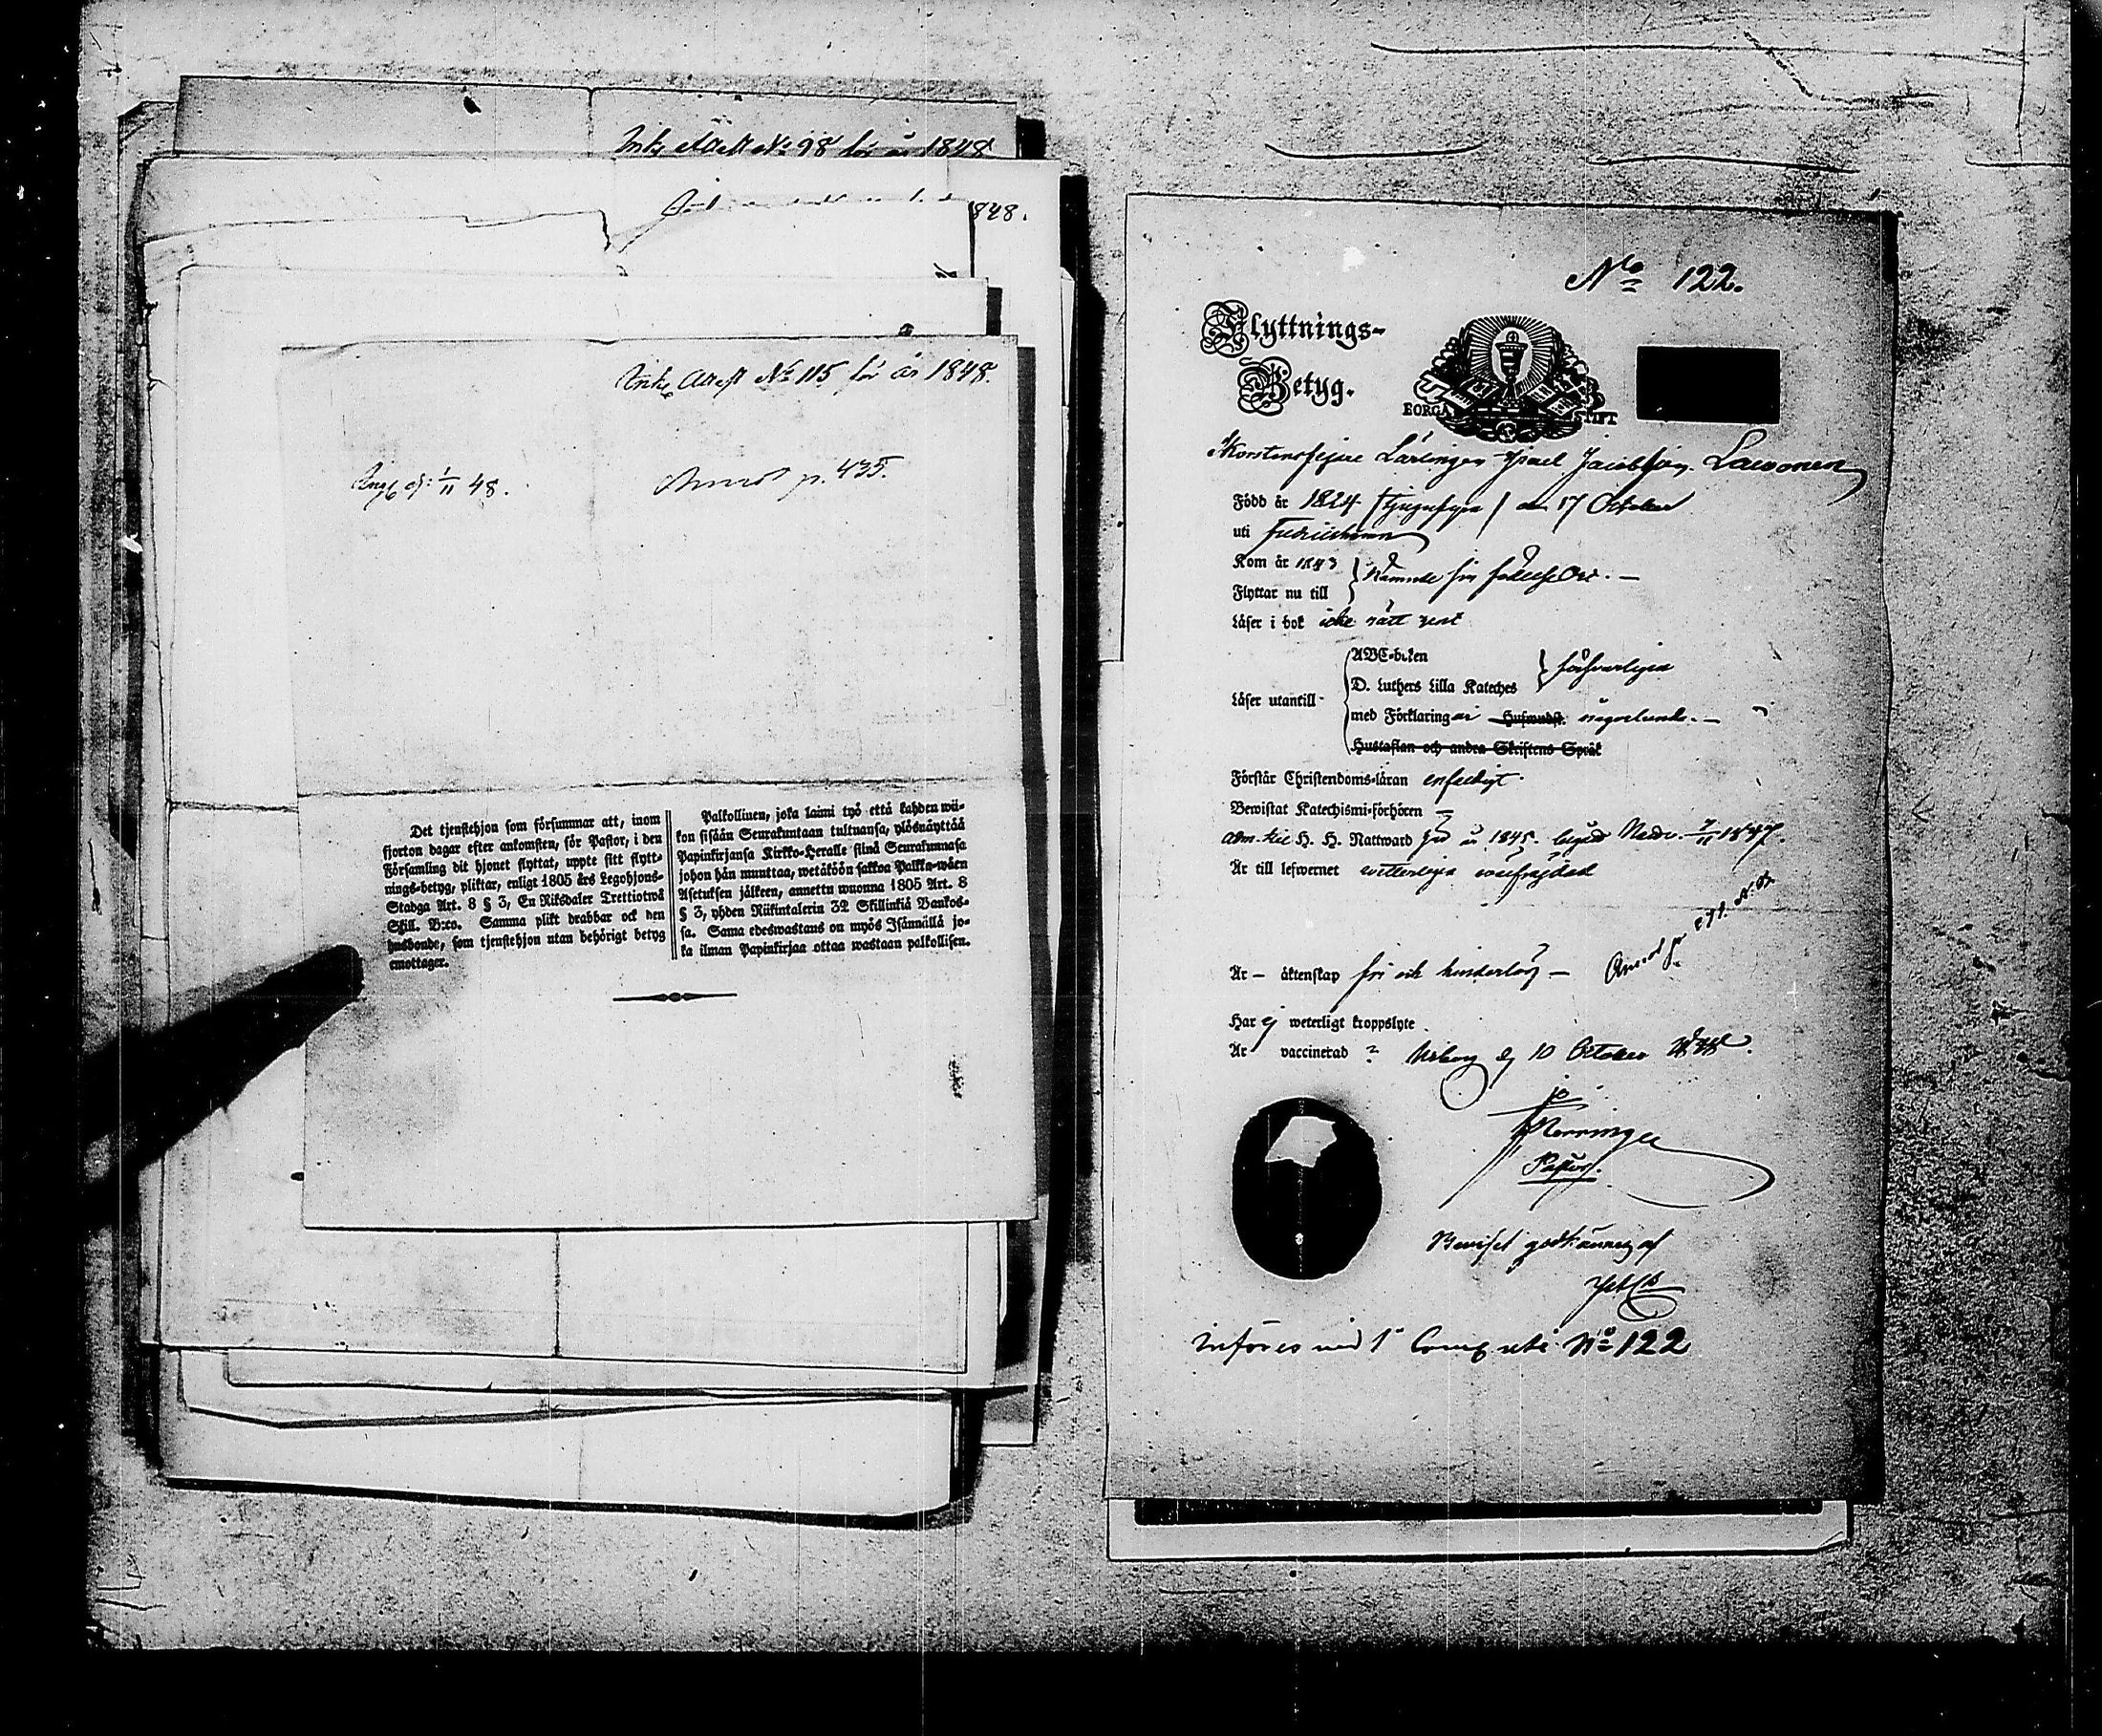 Ink. Attest No 98 för år 1848
848.
Ink. Attest No 115 för år 1848.
48.
p. 435.
Det tjenstehjon som försummar att, inom
fjorton dagar efter ankomsten, för Pastor, i den
Församling dit hjonet flyttat, uppte sitt flytt-
nings-betyg, pliktar, enligt 1805 års Legohjons-
Stadga Art. 8 § 3, En Riksdaler Trettiotwå
Skill. B:co. Samma plikt drabbar ock den
husbonde, som tjenstehjon utan behörigt betyg
emottager.
Palkollinen, joka laimi lyö että kahden wii-
kon sisään Seurakuntaan tultuansa, ylösnäyttää
Papinkirjansa Kirkko-Heralle siinä Seurakunnasa
johon hän muuttaa, wetäköön sakkoa Palkka-wäen
Asetuksen jälkeen, annettu wuonna 1805 Art. 8
§ 3, yhden Riikintalerin 32 Skillinkiä Bankos-
sa. Sama edeswastaus on myös Isännällä jo-
ka ilman Papinkirjaa ottaa wastaan palkollisen.
No 122.
Flyttnings-
Betyg.
BORGÅ STIFT
Skorstensfejare Lärlingen Israel Jacobsson Lavonen
Född år 1824 (tjugufyra) den 17 October
uti Fredrikshamn
Kom år 1843
Flyttar nu till
nämnde sin födelse Ort. —
Läser i bok icke rätt rent
Läser utantill
ABC-boken
D. Luthers Lilla Kateches
försvarligen
med Förklaringar Huswudst. någorlunda. —
Hustaflan och andra Skriftens Språk
Förstår Christendoms-läran enfeldigt
Bewistat Katechismi-förhören —
Adm. till H. H. Nattward år 1845. begått Nattv. 1847.
Är till lefwernet wetterligen oberyktad
Är — äktenskap fri och hinderlös —
Har ej weterligt kroppslyte
Är vaccinerad ? Wiborg d. 10 October
Pastor.
Beviset godkännes af
Införes vid 1a Comp. uti No 122